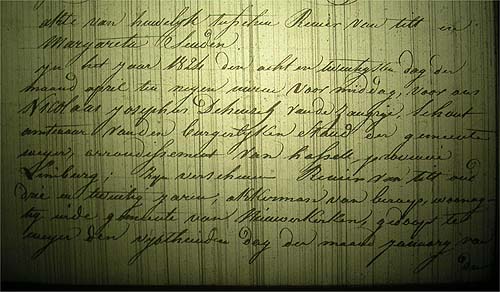 akte van huwelijk tusschen Renier van tilt en
Margareta Leuden
jn het jaar 1824 den acht en twentigsten dag der
maand april ten negen uren voor middag, voor ons
Nicolaas josephus vande schout
amtenaer vanden burgerlijken staed der gemeente
weyer arrondissement van hasselt provincie
Limburg; Zyn verschenen Renier van tilt oud
drie en twintig jaren, akkerman van beroep, woonag-
tig inde gemeente van Nieuwerkerken, geboren te
weyer den vyfthienden dag der maand january van